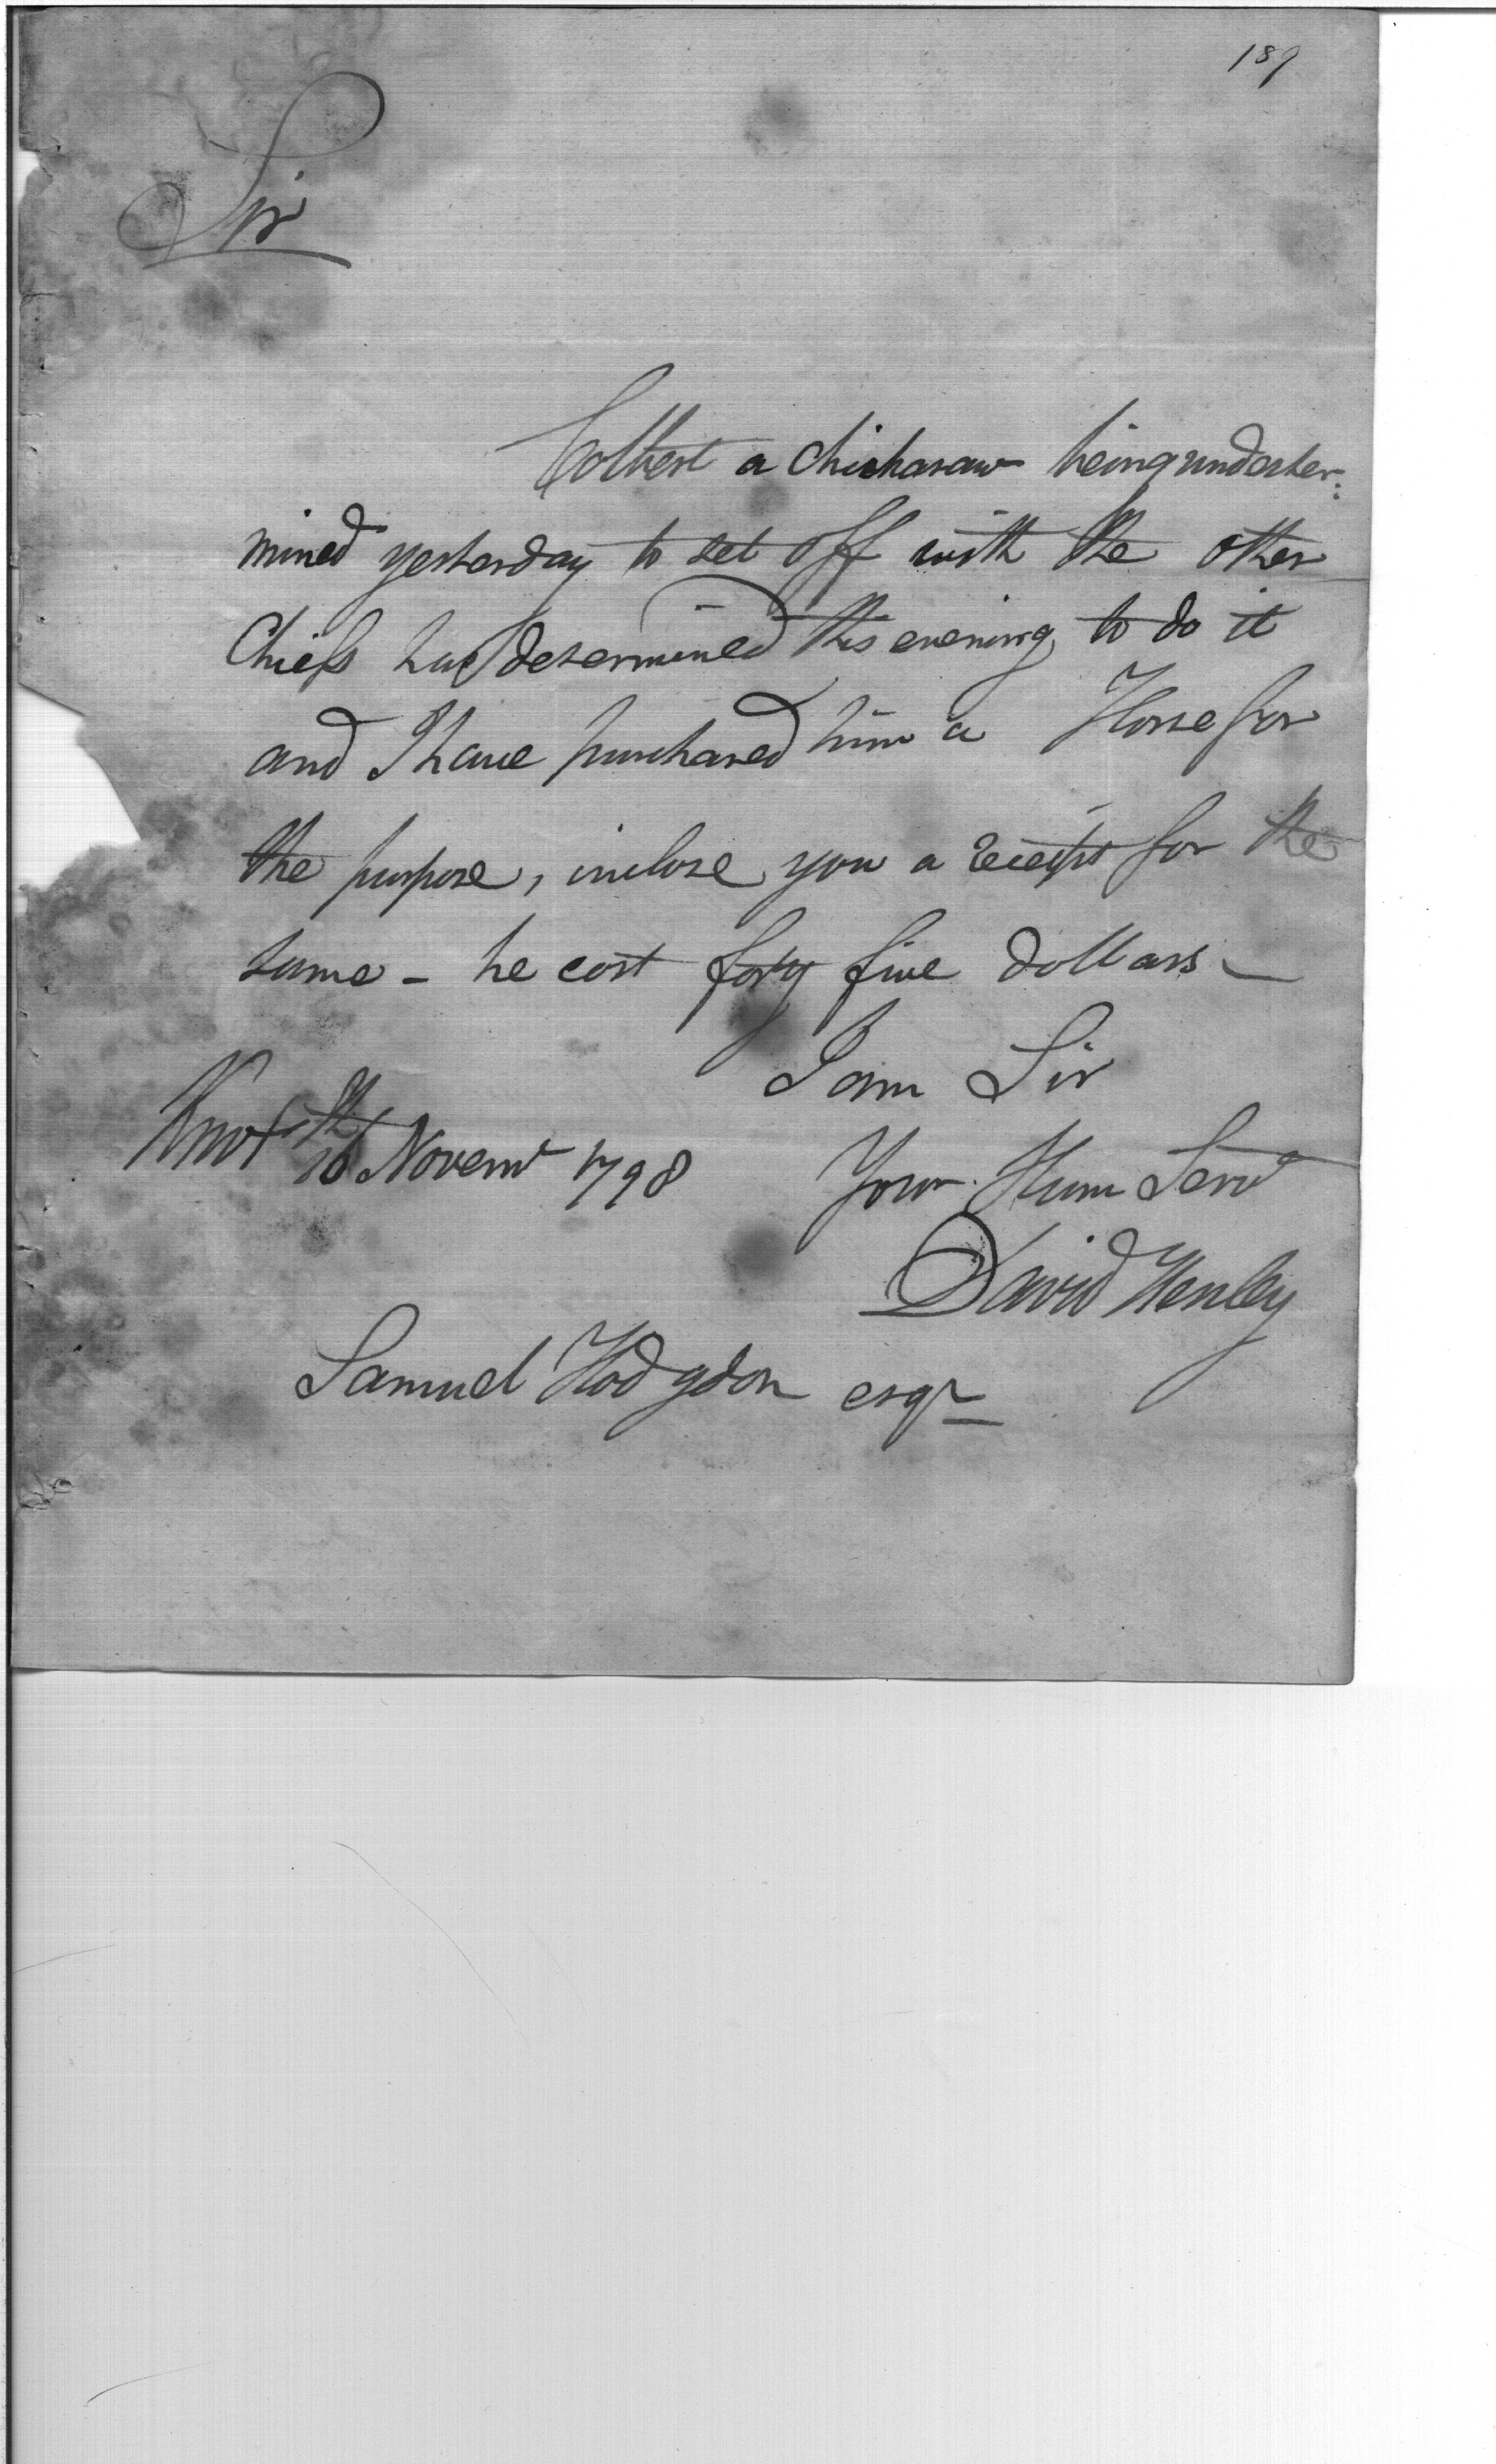 189
Sir
Colbert a Chickasaw being undeter:
mined yesterday to set off with the other
Chiefs has determined this evening to do it
and I have purchased him a Horse for
the purpose, inclose you a receipt for the
same - he cost forty five dollars -
I am Sir
Knox 16th Novemr 1798 Your Hum Servt
David Henley
Samuel Hodgdon esqr